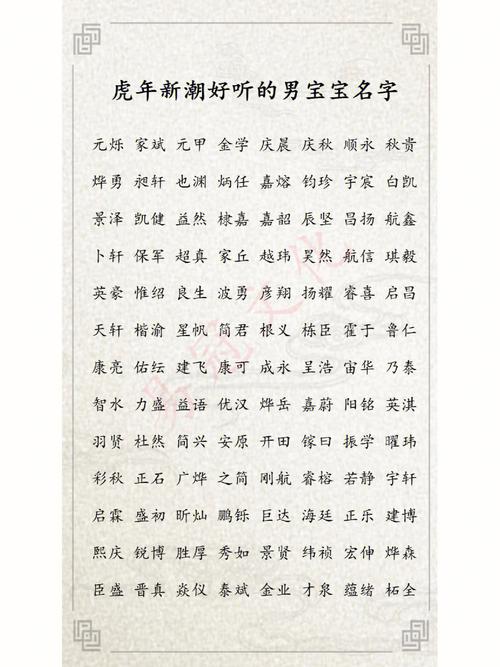 虎年新潮好听的男宝宝名字
元烁 家斌 元甲 金学 庆晨 庆秋 顺永 秋贵
烨勇 昶轩 也渊 炳任 嘉熔 钧珍 宇宸 白凯
景泽 凯健 益然 棣嘉 嘉韶 辰坚 昌扬 航鑫
卜轩 保军 超真 家丘 越玮 昊然 航信 琪毅
英豪 惟绍 良生 波勇 彦翔 扬耀 睿喜 启昌
天轩 楷渝 星帆 简君 根义 栋臣 霍于 鲁仁
康亮 佑纭 建飞 康可 成永 呈浩 宙华 乃泰
智水 力盛 益语 优汉 烨岳 嘉蔚 阳铭 英淇
羽贤 杜然 简兴 安原 开田 镓曰 振学 曜玮
彩秋 正石 广烨 之简 刚航 睿榕 若静 宇轩
启霖 盛初 昕灿 鹏铄 巨达 海廷 正乐 建博
熙庆 锐博 胜厚 秀如 景贤 纬祯 宏伸 烨森
臣盛 晋真 焱仪 泰斌 金业 才泉 蕴绪 柘全